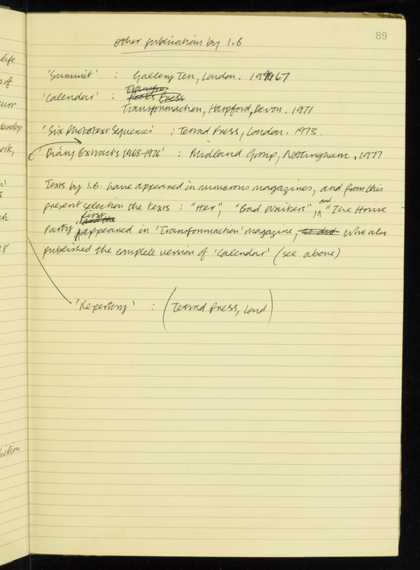 89
other publications by I.B
'Summit' : Gallery Ten, London. 1967
'Calendar' :
Transformaction, Harpford, Devon. 1971
'Six Phototext Sequences' : Tetrad Press, London. 1973.
'Diary Extracts 1968-1976' : Midland Group, Nottingham, 1977
Texts by I.B. have appeared in numerous magazines, and from this
present selection the texts : "Her", "Bad Waiters", and "The House
Party" first appeared in 'Transformaction' magazine, who also
published the complete version of 'Calendar' (see above)
'Repertory' : (Tetrad Press, Lond)
life
of
work,